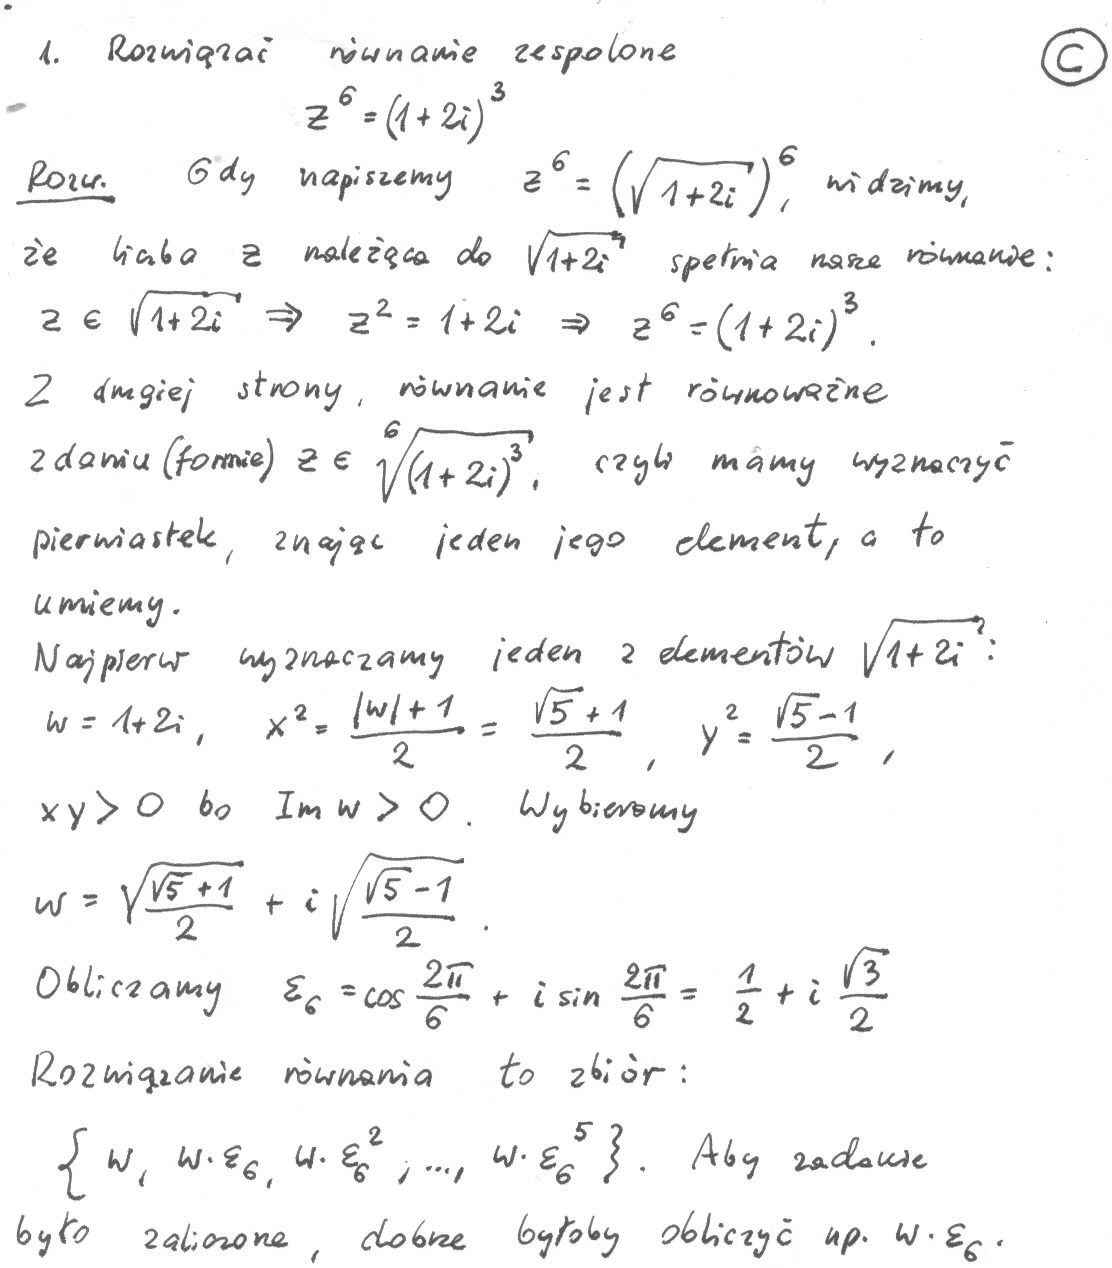 1. Rozwiązać równanie zespolone
C
z^6 = (1+2i)^3
Rozw. Gdy napiszemy z^6 = (√(1+2i))^6, widzimy,
że liczba z należąca do √(1+2i) spełnia nasze równanie:
z ∈ √(1+2i) ⇒ z^2 = 1+2i ⇒ z^6 = (1+2i)^3.
Z drugiej strony, równanie jest równoważne
zdaniu (formie) z ∈ ⁶√((1+2i)^3), czyli mamy wyznaczyć
pierwiastek, znając jeden jego element, a to
umiemy.
Najpierw wyznaczamy jeden z elementów √(1+2i):
w = 1+2i, x^2 = (|w|+1)/2 = (√5+1)/2, y^2 = (√5-1)/2,
xy > 0 bo Im w > 0. Wybieramy
w = √((√5+1)/2) + i √((√5-1)/2).
Obliczamy ε_6 = cos 2π/6 + i sin 2π/6 = 1/2 + i √3/2
Rozwiązanie równania to zbiór:
{w, w·ε_6, w·ε_6^2, ..., w·ε_6^5}. Aby zadanie
było zaliczone, dobrze byłoby obliczyć np. w·ε_6.